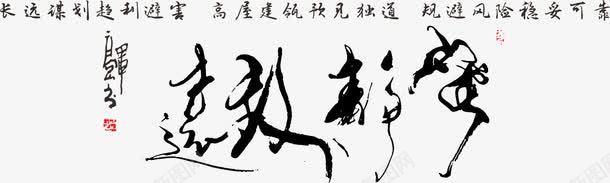 长远谋划趋利避害 高屋建瓴预见独道 规避风险稳妥可靠
寧靜致遠